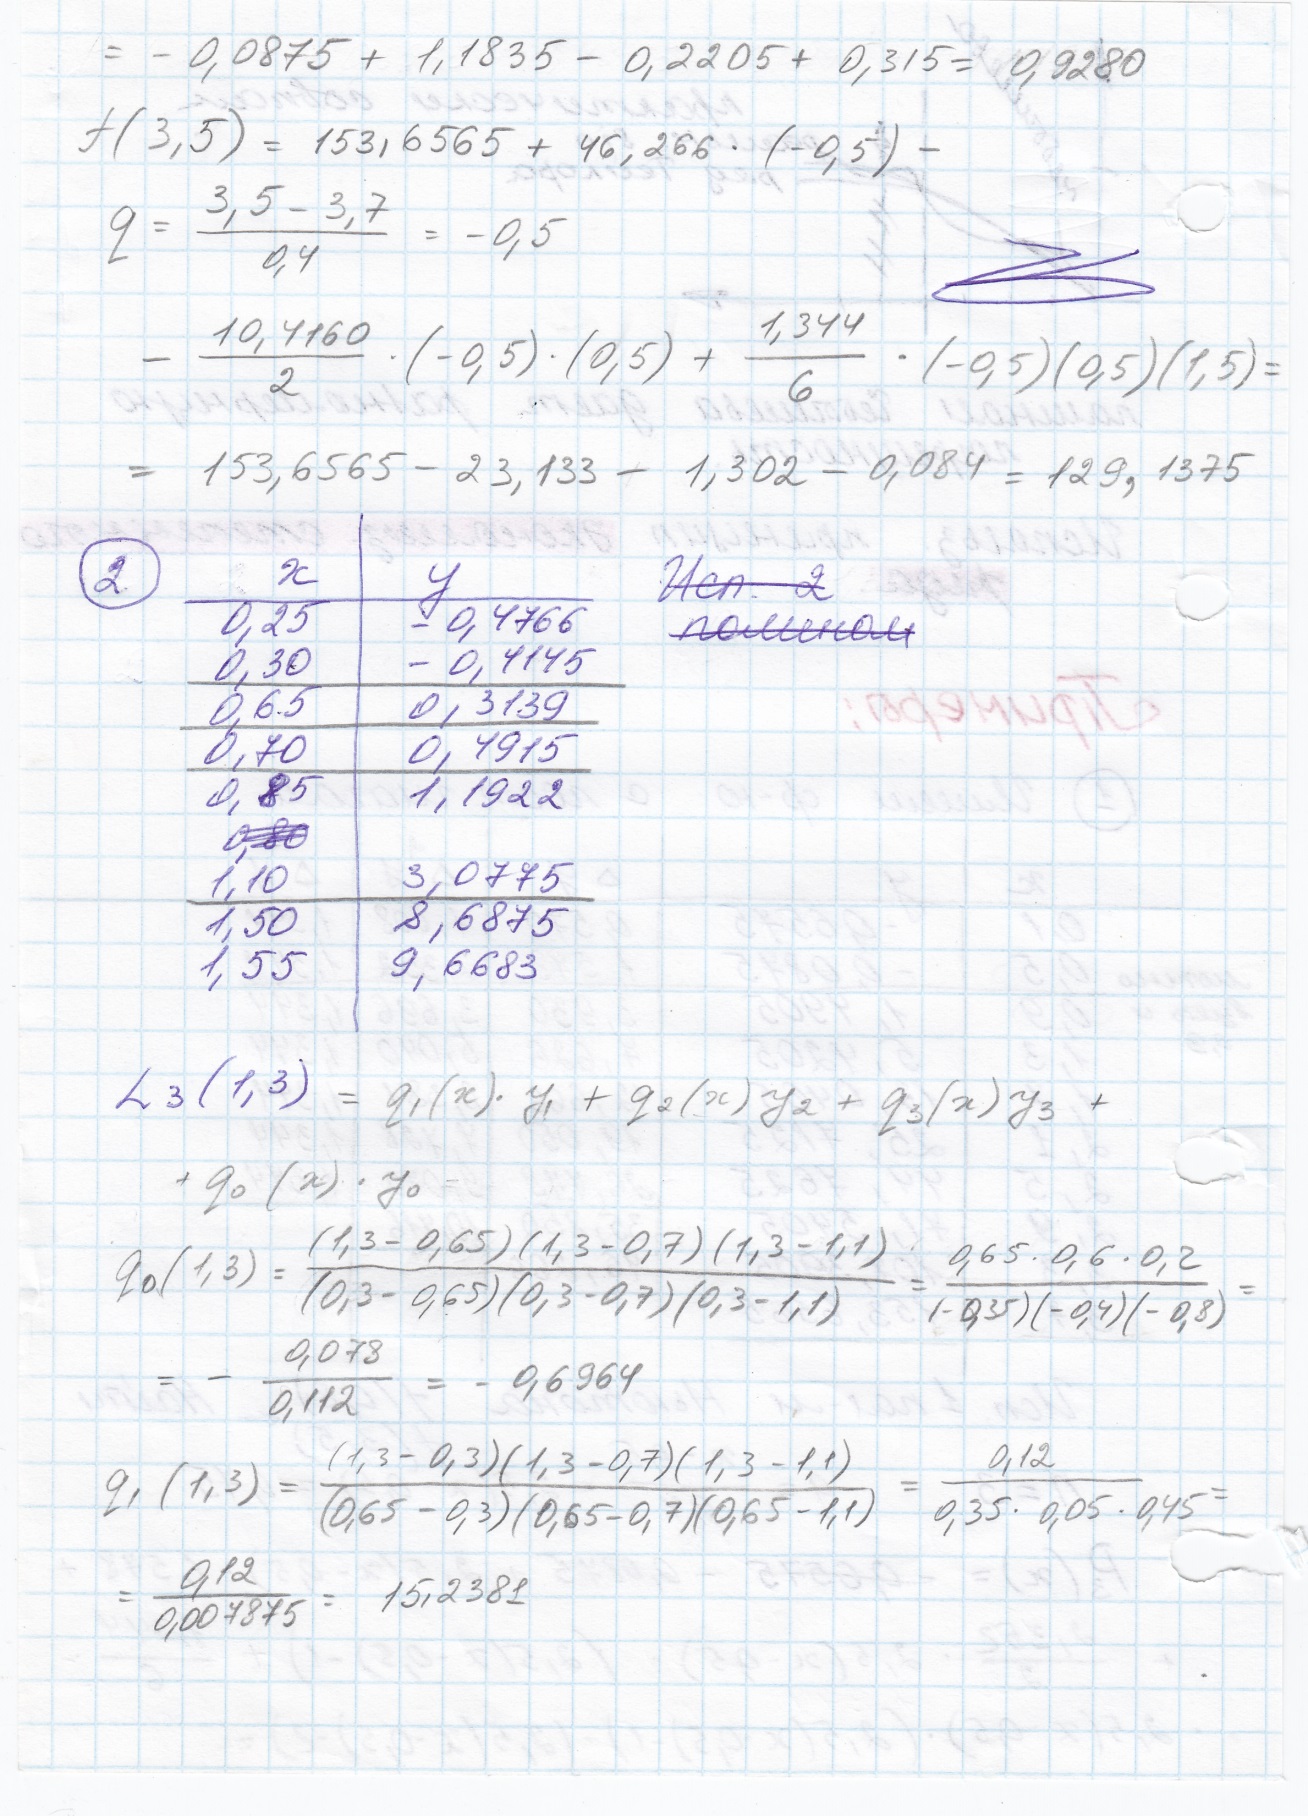 = - 0,0875 + 1,1835 - 0,2205 + 0,315 = 0,9280
f(3,5) = 153,6565 + 46,266 · (-0,5) -
q = \frac{3,5 - 3,7}{0,4} = -0,5
- \frac{10,4160}{2} · (-0,5) · (0,5) + \frac{1,344}{6} · (-0,5)(0,5)(1,5) =
= 153,6565 - 23,133 - 1,302 - 0,084 = 129,1375
2. x y Исп. 2
полином
0,25 - 0,4766
0,30 - 0,4145
0,65 0,3139
0,70 0,4915
0,85 1,1922
0,80
1,10 3,0775
1,50 8,6875
1,55 9,6683
L₃(1,3) = q₁(x) · y₁ + q₂(x) y₂ + q₃(x) y₃ +
+ q₀(x) · y₀
q₀(1,3) = \frac{(1,3 - 0,65)(1,3 - 0,7)(1,3 - 1,1)}{(0,3 - 0,65)(0,3 - 0,7)(0,3 - 1,1)} = \frac{0,65 · 0,6 · 0,2}{(-0,35)(-0,4)(-0,8)} =
= - \frac{0,078}{0,112} = - 0,6964
q₁(1,3) = \frac{(1,3 - 0,3)(1,3 - 0,7)(1,3 - 1,1)}{(0,65 - 0,3)(0,65 - 0,7)(0,65 - 1,1)} = \frac{0,12}{0,35 · 0,05 · 0,45} =
= \frac{0,12}{0,007875} = 15,2381